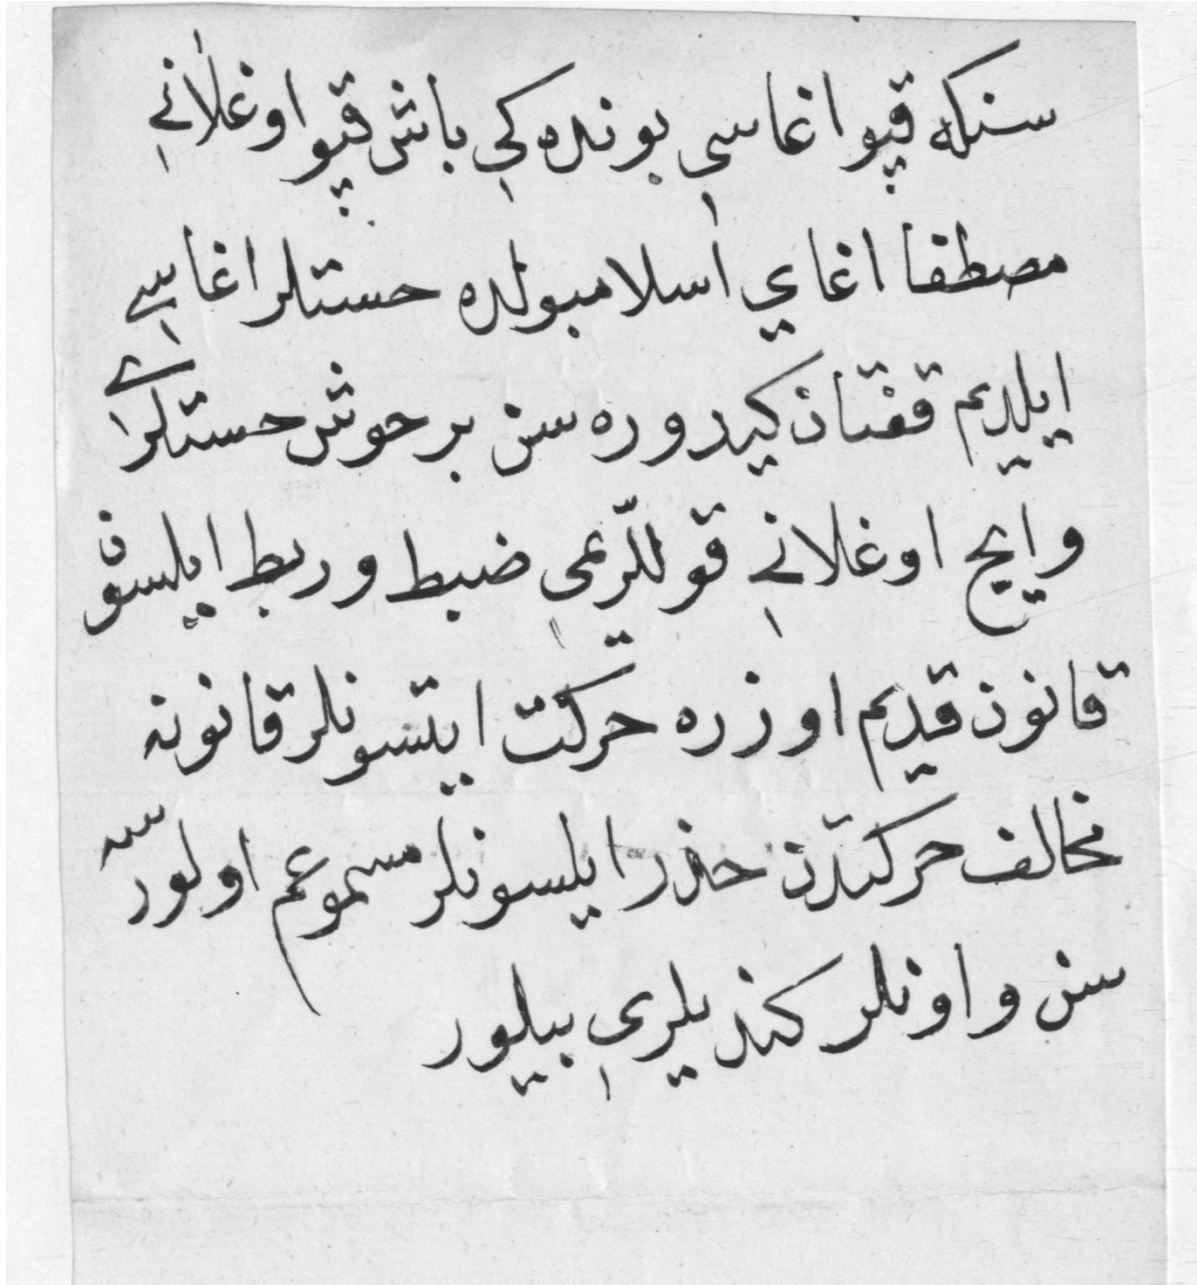 سنكه قپو اغاسی بونده كی باش قپو اوغلانی
مصطفا اغای اسلامبولده خستلر اغاسی
ایلدیم قفتان كیدوره سن بر خوش خستلری
و ایچ اوغلانی قوللریمی ضبط و ربط ایلیسون
قانون قدیم اوزره حركت ایتسونلر قانونه
مخالف حركتدن حذر ایلیسونلر مسموعم اولورسه
سن و اونلر كندیلری بیلور